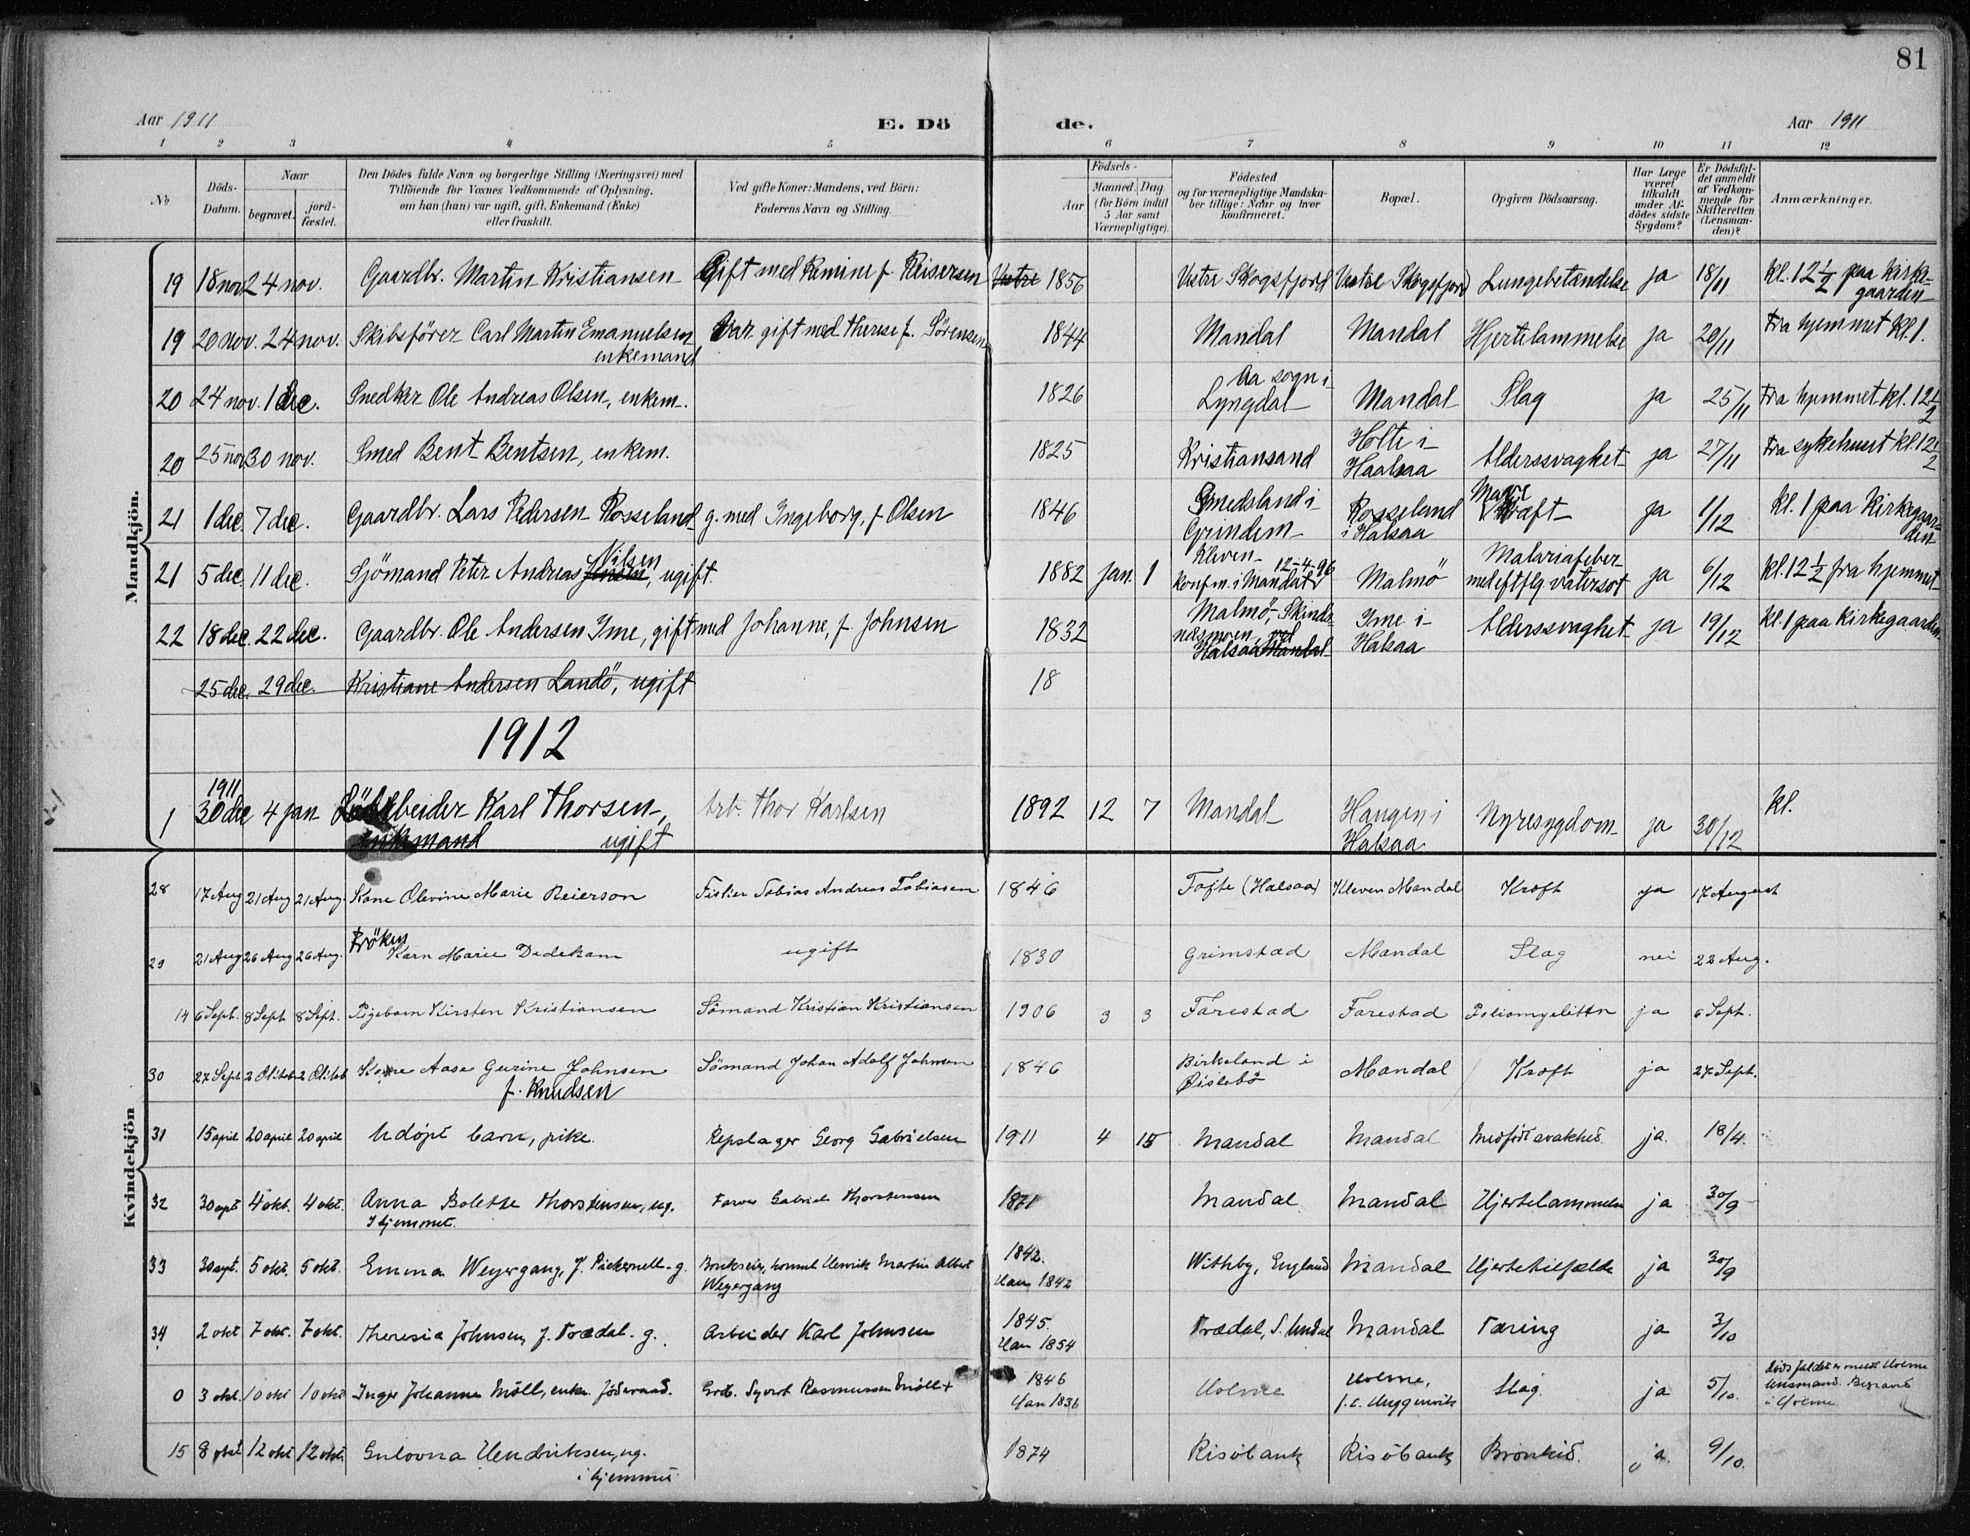 81
Aar 1911 E. Dö de. Aar 1911
1 2 3 4 5 6 7 8 9 10 11 12
No
Döds-Datum.
Naar
begravet.
jord-fæstet.
Den Dödes fulde Navn og borgerlige Stilling (Næringsvei) med
Tilföiende for Voxnes Vedkommende af Oplysning,
om han (hun) var ugift, gift, Enkemand (Enke)
eller fraskilt.
Ved gifte Koner: Mandens, ved Börn:
Faderens Navn og Stilling.
Födsels-
Aar
Maaned. Dag
(for Börn indtil
5 Aar samt
Værnepligtige).
Födested
og for værnepligtige Mandska-
ber tillige: Naar og hvor
konfirmeret.
Bopæl.
Opgiven Dödsaarsag.
Har Læge
været
tilkaldt
under Af-
dödes sidste
Sygdom?
Er Dödsfal-
det anmeldt
af Vedkom-
mende for
Skifteretten
(Lensman-
den)?
Anmærkninger.
Mandkjön.
19 18 nov 24 nov. Gaardbr. Martin Kristiansen Gift med Ramine f. Reiersen Vestre 1856 Vestre Skogsfjord Vestre Skogsfjord Lungebetændelse ja 18/11 kl. 12 1/2 paa kirke-
gaarden
19 20 nov. 24 nov. Skibsförer Carl Martin Emanuelsen Var gift med Therese f. Sørensen 1844 Mandal Mandal Hjertelammelse ja 20/11 Fra hjemmet kl. 1.
enkemand
20 24 nov. 1 dec. Snedker Ole Andreas Olsen, enkem. 1826 Aa sogn i Mandal Slag ja 25/11 Fra hjemmet kl. 12 1/2
Lyngdal
20 25 nov 30 nov. Smed Bent Bentsen, enkem. 1825 Kristiansand Holte i Alderssvaghet ja 27/11 Fra sykehuset kl. 12 1/2
Haalsaa
21 1 dec. 7 dec. Gaardbr. Lars Pedersen Rosseland g. med Ingeborg, f. Olsen 1846 Smedsland i Rosseland Mave kræft ja 1/12 kl. 1 paa kirkegaar-
den
Grindem i Halsaa
21 5 dec. 11 dec. Sjömand Peter Andreas Jensen Nilsen, ugift. 1882 jan. 1 Kleven Malmö Malariafeber ja 6/12 kl. 12 1/2 fra hjemmet
konfm. i Mandal 12-4-96 med eftflg vatersot
22 18 dec. 22 dec. Gaardbr. Ole Andersen Ime, gift med Johanne, f. Johnsen 1832 Malmö, Skinds- Ime i Alderssvaghet ja 19/12 kl. 1 paa kirkegaarden
nesmoen, ved
Halsaa Mandal Halsaa
25 dec. 29 dec. Kristiane Andersen Landö, ugift 18
1912
1911
1 30 dec 4 jan arbeider Karl Thorsen, Arb. Thor Karlsen 1892 12 7 Mandal Haugen i Nyresygdom ja 30/12 kl.
enkemand ugift Halsaa
Kvindekjön
28 17 Aug 21 Aug 21 Aug. Kone Olevine Marie Reierson Fisker Tobias Andreas Tobiasen 1846 Tofte (Halsaa) Kleven Mandal Kræft ja 17 August
29 21 Aug 26 Aug 26 Aug. Fröken Karn Marie Dedekam ugift 1830 Grimstad Mandal Slag nei 22 Aug.
14 6 Sept. 8 Sept 8 Sept. Pigebarn Kirsten Kristiansen Sømand Kristian Kristiansen 1906 3 3 Farestad Farestad ja 6 Sept.
30 27 Sept. 2 Oktob 2 Oktob Kone Aase Gurine Johnsen Sömand Johan Adolf Johnsen 1846 Birkeland i Mandal Kræft ja 27 Sept.
f. Knudsen Øislebö
31 15 april 20 april 20 april Udøpt barn, pike. Repslager Georg Gabrielsen 1911 4 15 Mandal Mandal Medfödt svakhed. ja. 18/4.
32 30 sept 4 okt. 4 okt. Anna Bolette Thorstensen, ug. Farver Gabriel Thorstensen 1871 Mandal Mandal Hjertelammelse ja 30/9
I hjemmet.
33 30 sept. 5 okt. 5 okt. Emma Weyergang, f. Pickernell. g. Brukseier, konsul Henrik Martin Albert 1842. Withby, England Mandal Hjertetilfælde ja 30/9
Weyergang Han 1842
34 2 okt 7 okt. 7 okt. Theresia Johnsen, f. Trædal. g. Arbeider Karl Johnsen 1845. Trædal, S. Undal Mandal Tæring ja 3/10
Han 1854
0 3 okt. 10 okt 10 okt Inger Johanne Möll, enke. Grdb. Syvert Rasmussen Möll + 1846 Holme Holme, Slag. ja 5/10. Dödsfaldet er meldt Holme
Han 1836 lensmand. Begravet
i Holme
15 8 okt. 12 okt 12 okt. Gulovna Hendriksen, ug. 1874 Risöbank Risöbank Bronkit. ja. 9/10.
i hjemmet